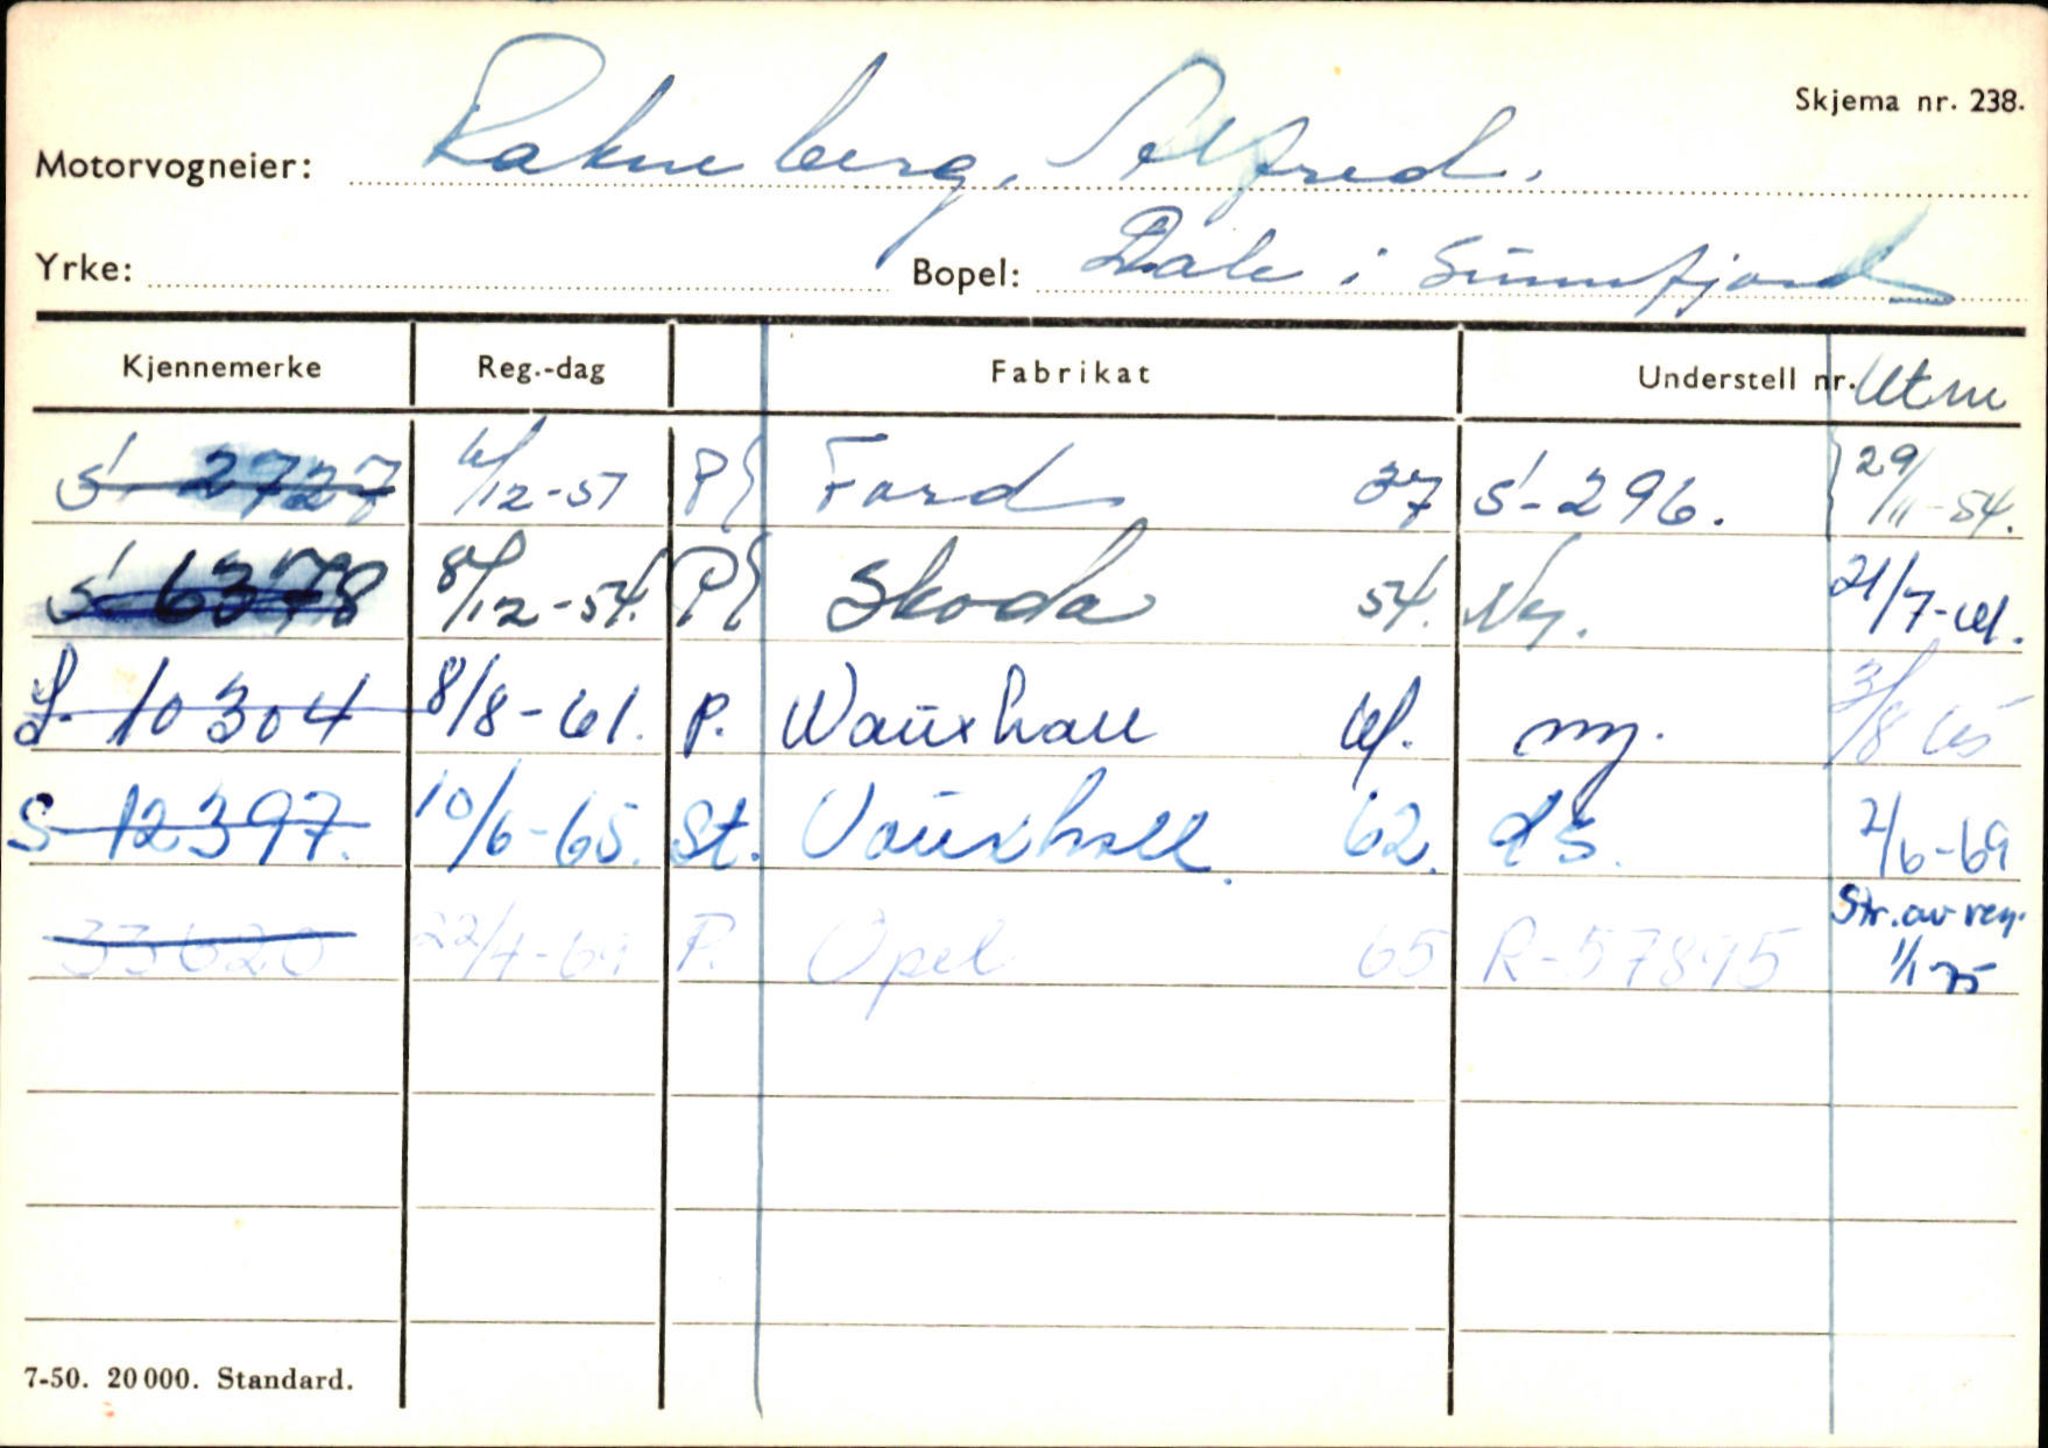 Skjema nr. 238.
Motorvogneier: Rakneberg, Alfred.
Yrke: Bopel: Dale i Sunnfjord
Kjennemerke Reg.-dag Fabrikat Understell nr. Utm
S-2727 6/12-51 P Ford 37 S-296. 29/11-54.
S-6378 8/12-54. P Skoda 54. Ny. 21/7-61.
S. 10304 8/8-61. P. Wauxhall 61. ny. 3/8 65
S-12397. 10/6-65. St. Vauxhall. 62. d s. 2/6-69
33620 22/4-69 P. Opel 65 R-57895 Str. av reg.
1/1-75
7-50. 20 000. Standard.